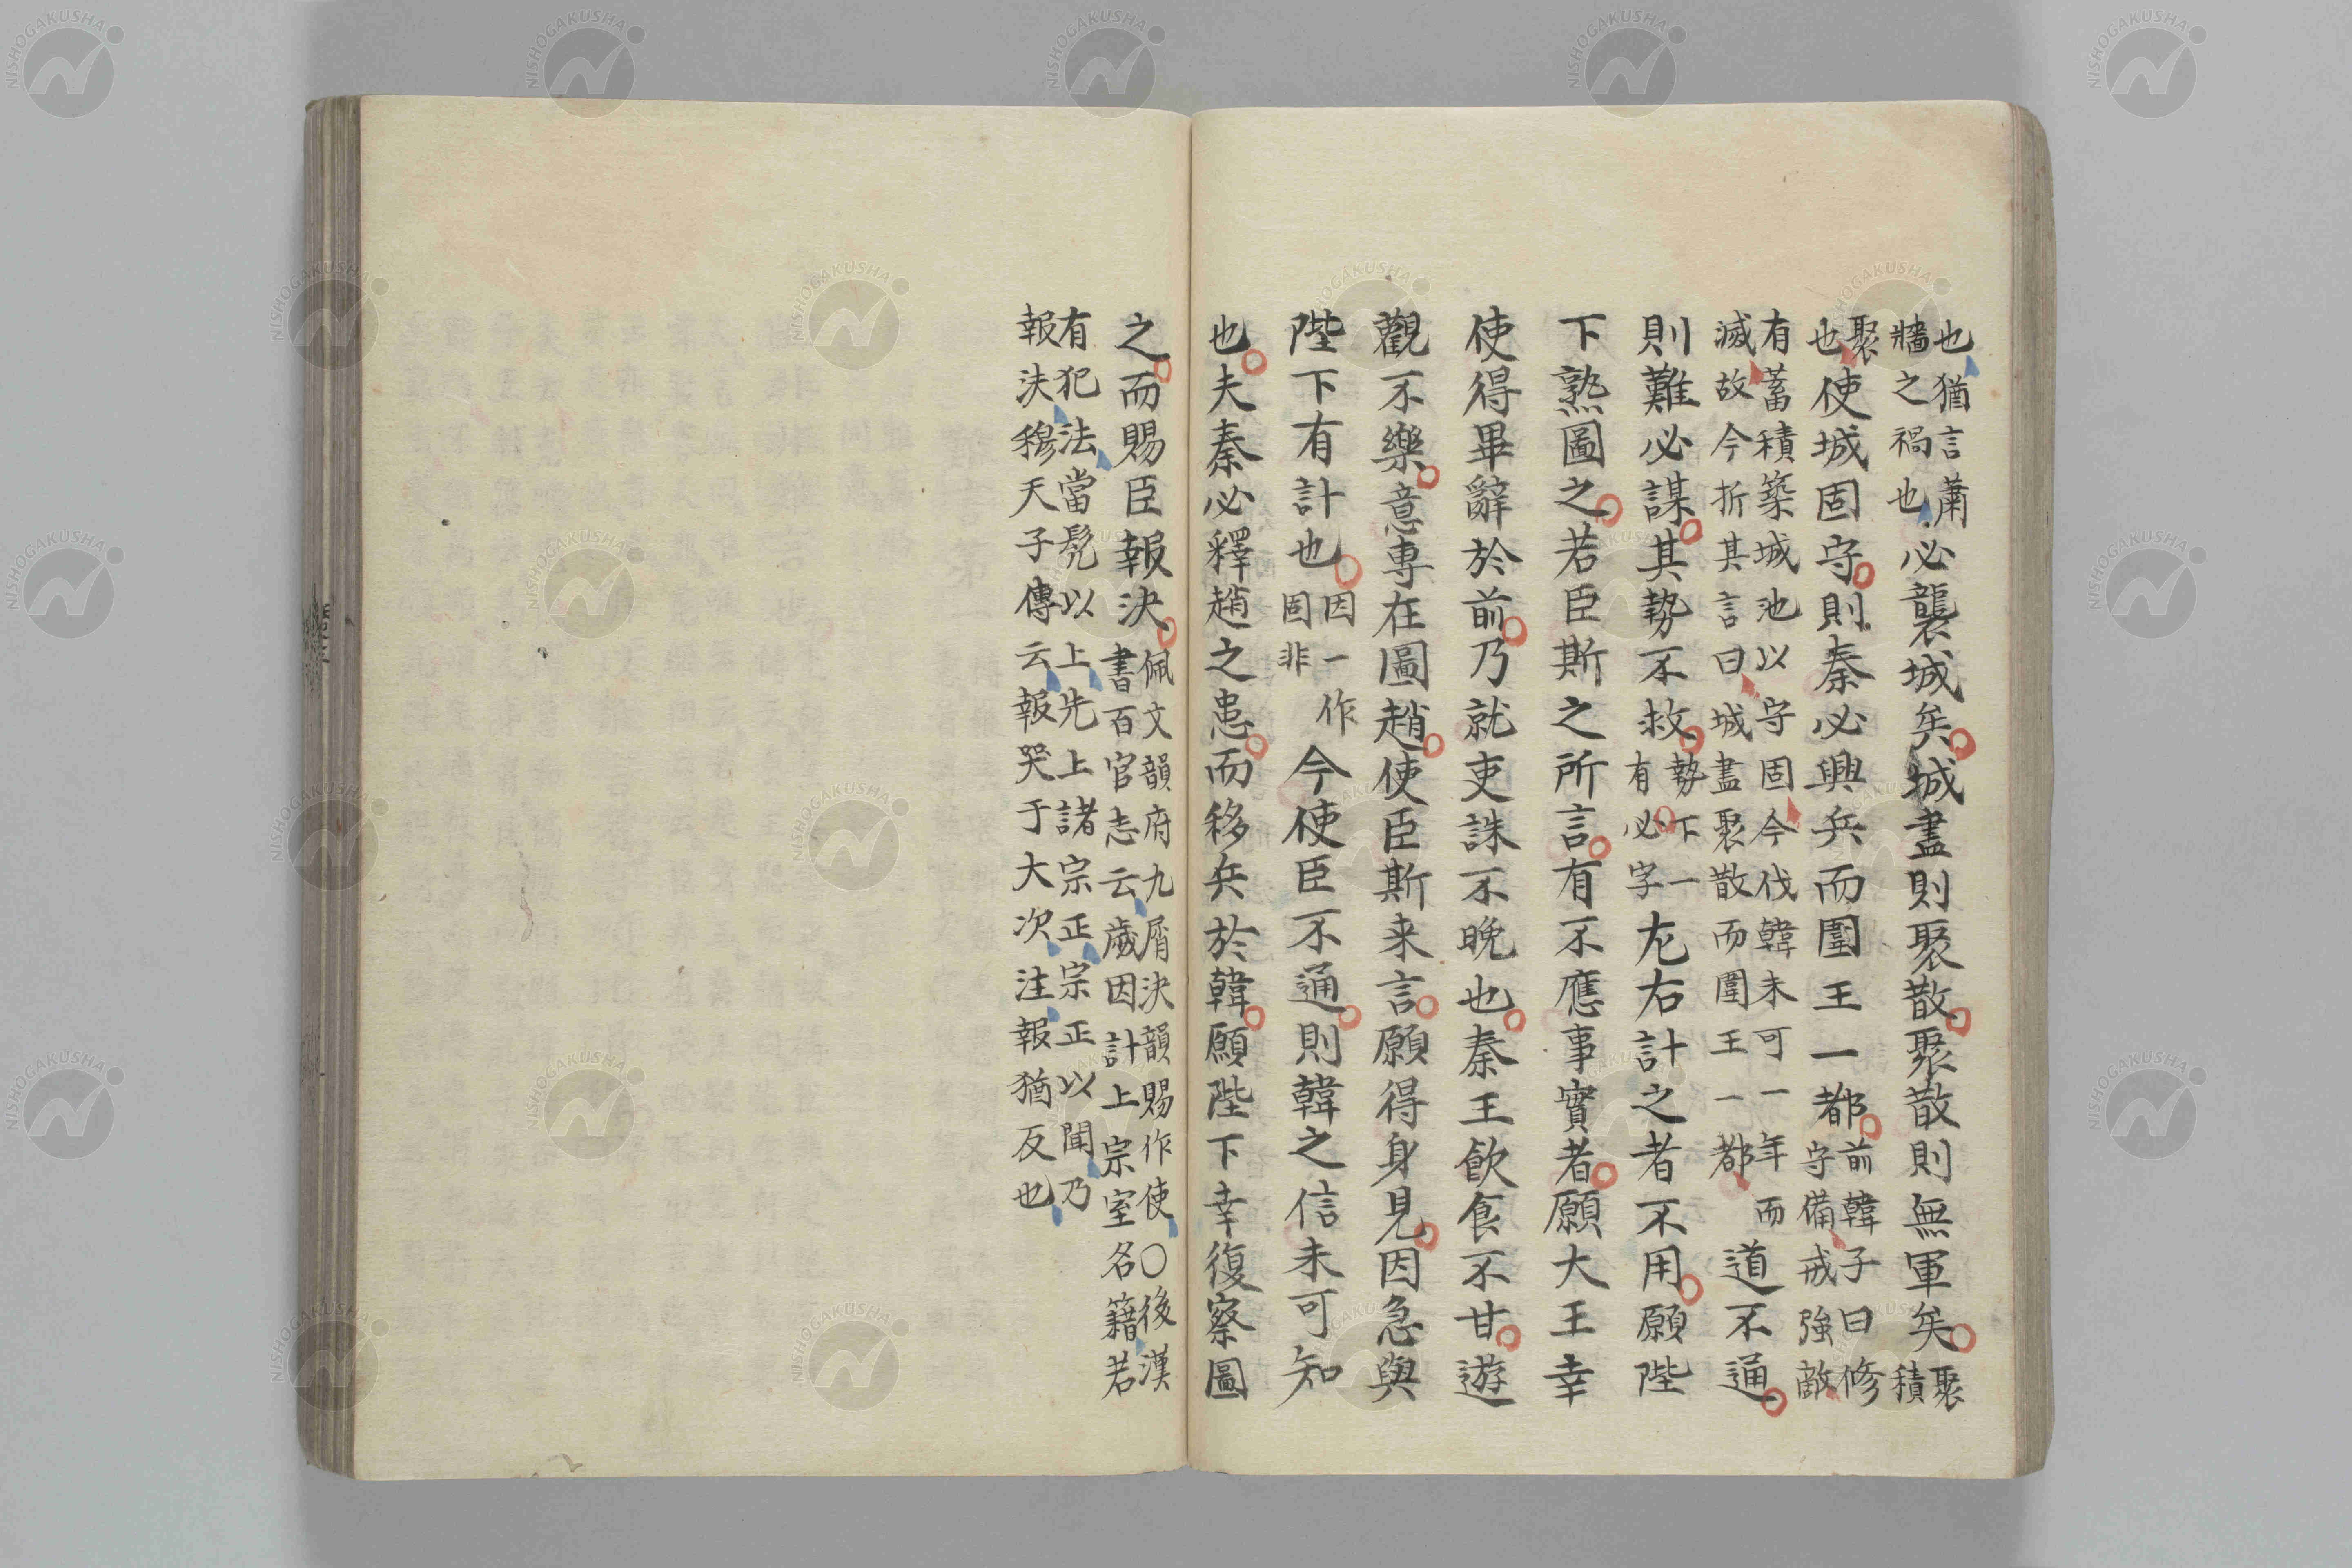 也猶言蕭
牆之禍也必襲城矣城盡則聚散聚散則無軍矣聚
積
聚
也使城固守則秦必興兵而圍王一都前韓子曰修
守備戒強敵
有蓄積築城池以守固今伐韓未可一年而
滅故今折其言曰城盡聚散而圍王一都道不通
則難必謀其勢不救勢下一
有必字左右計之者不用願陛
下熟圖之若臣斯之所言有不應事實者願大王幸
使得畢辭於前乃就吏誅不晚也秦王飲食不甘遊
觀不樂意專在圖趙使臣斯来言願得身見因急與
陛下有計也因一作
固非今使臣不通則韓之信未可知
也夫秦必釋趙之患而移兵於韓願陛下幸復察圖
之而賜臣報決佩文韻府九屑決韻賜作使〇後漢
書百官志云歲因計上宗室名籍若
有犯法當髡以上先上諸宗正宗正以聞乃
報決穆天子傳云報哭于大次注報猶反也
NISHOGAKUSHA